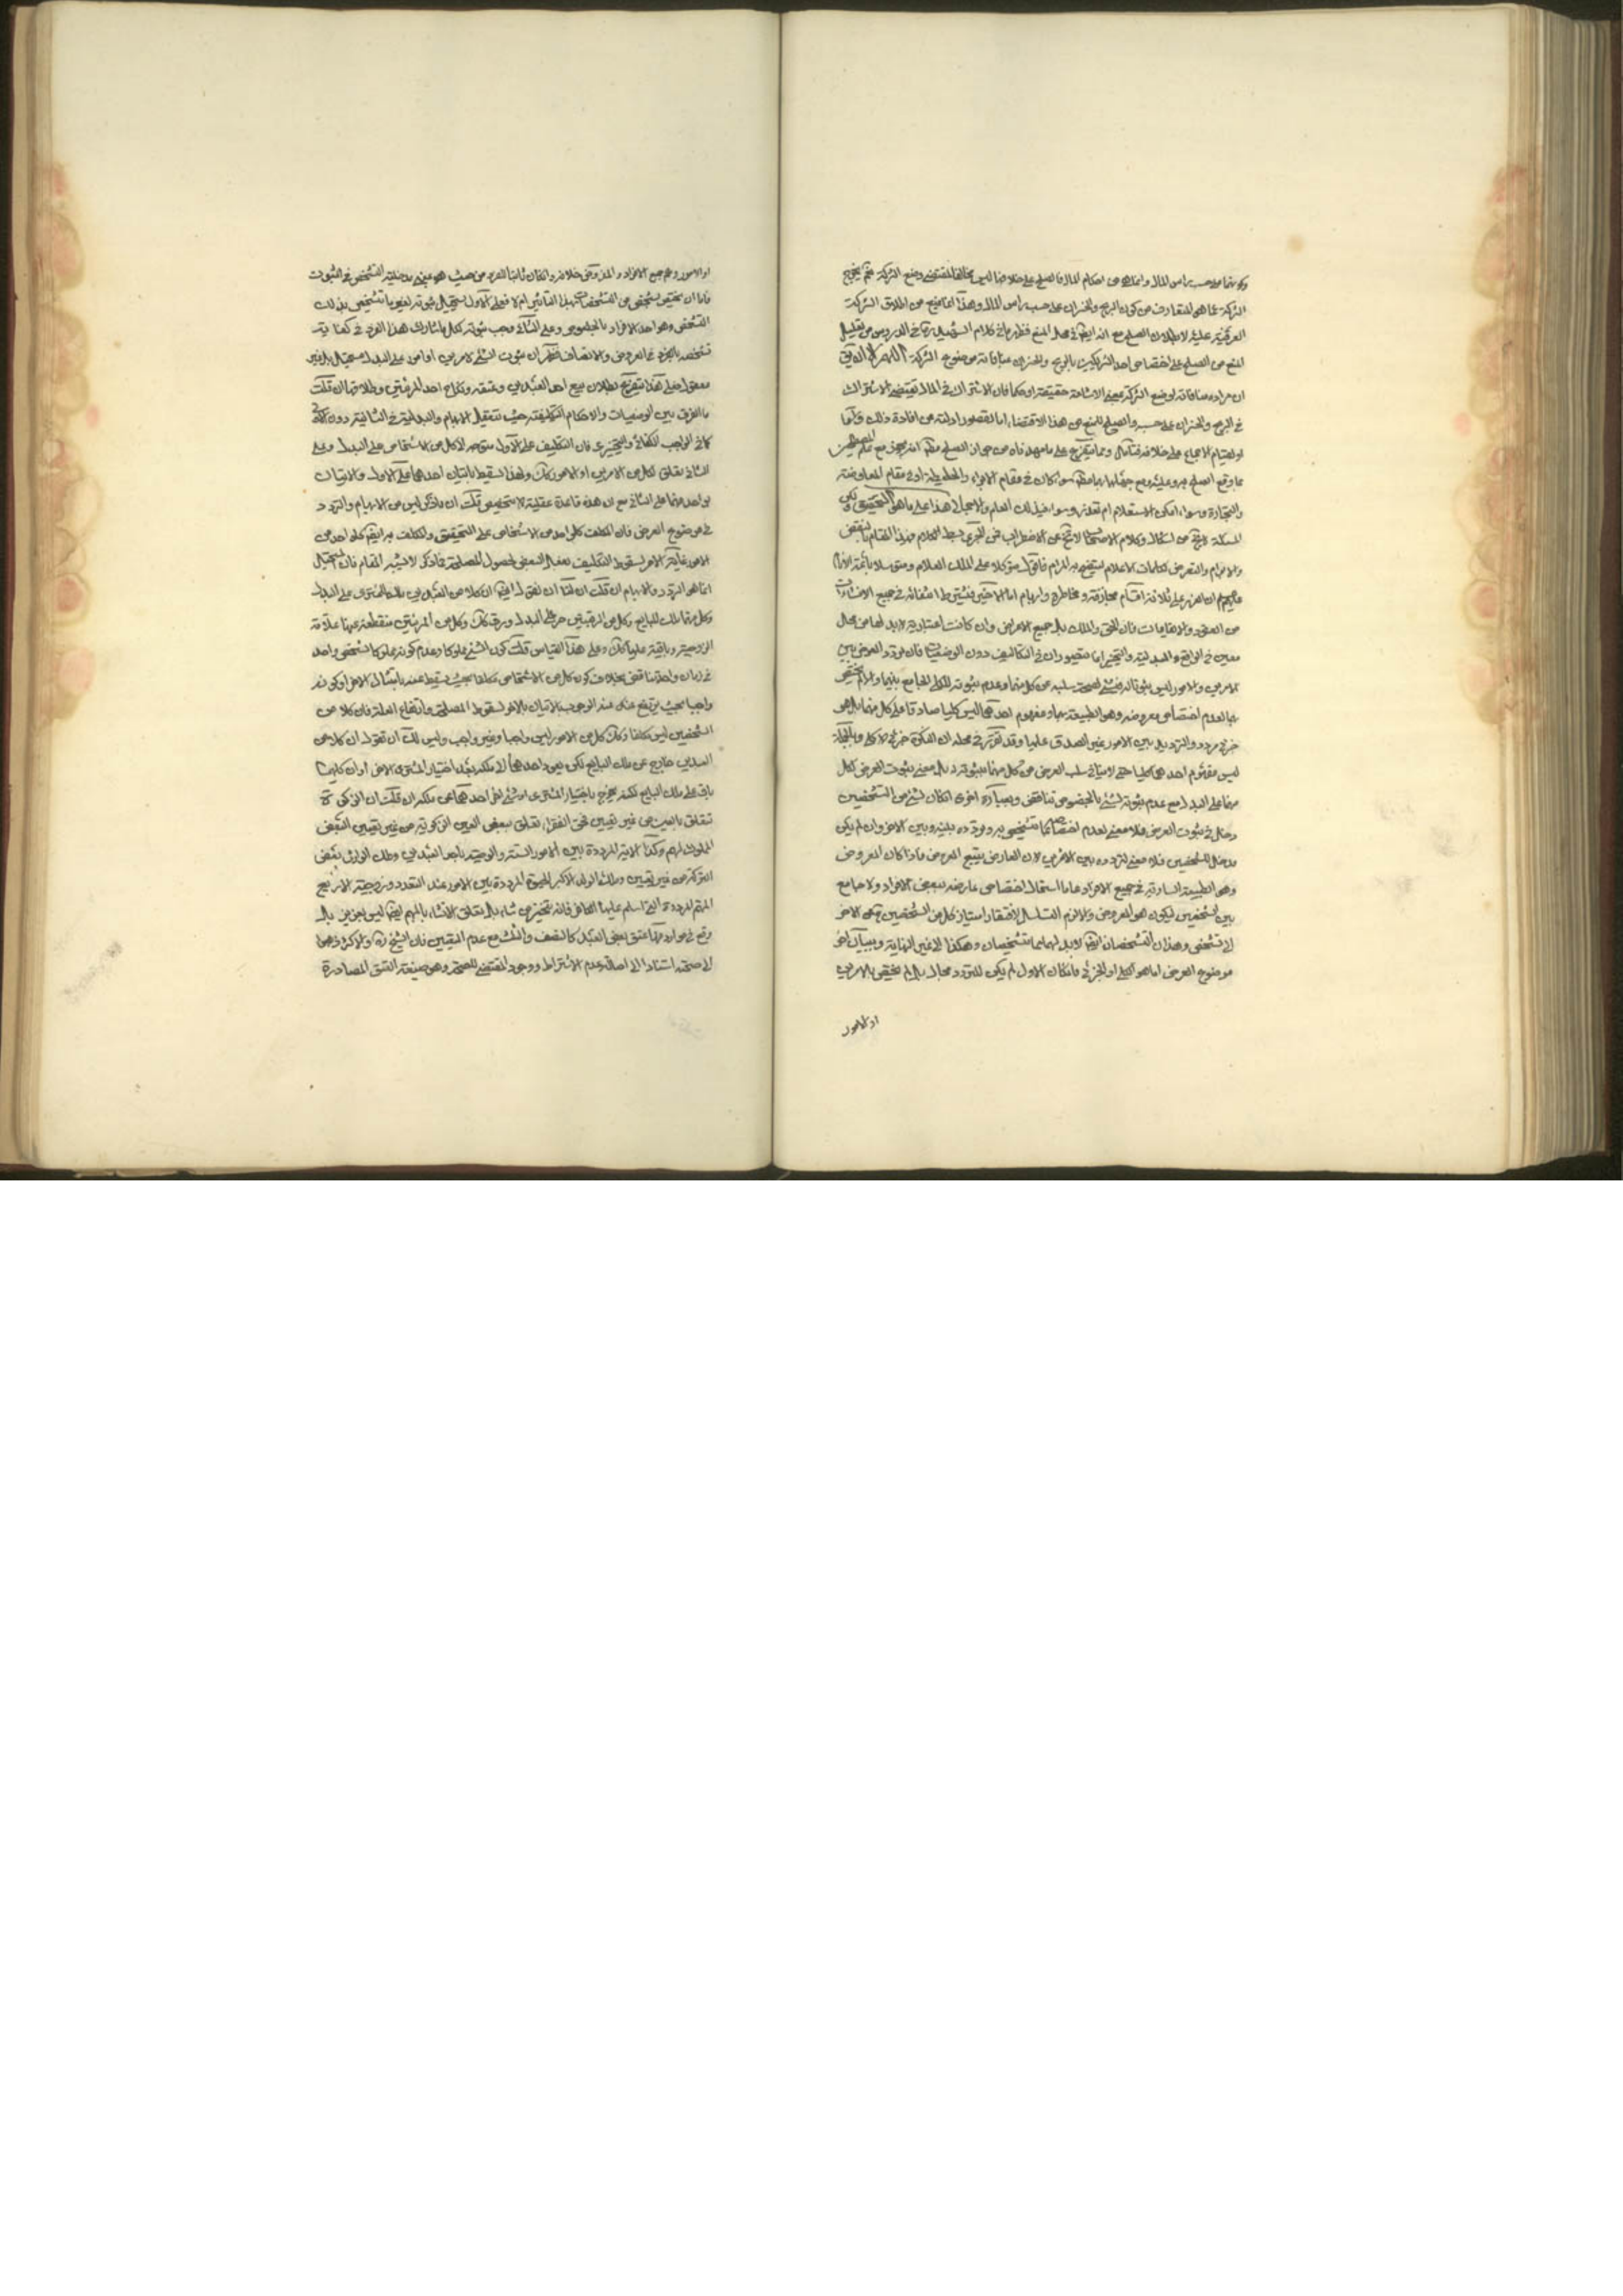 وكونهما على حسب راس المال وانما هو من احكام المال فالصلح على خلافها ليس مخالفا لمقتضى وضع الشركة نعم يخرج
الشركة عما هو المتعارف من كون الربح والخسران على حسب راس المال وهذا انما يمنع من اطلاق الشركة
العرفية عليه لا بطلان الصلح مع انه ايضا في محل المنع فظهر ما في كلام الشهيد ره في الدروس من تعليل
المنع من الصلح على اختصاص احد الشريكين بالربح والخسران بمنافاته موضوع الشركة اللهم الا ان يق
ان مراده منافاته لوضع الشركة بمعنى الاشاعة حقيقة او حكما فان الاشتراك في المال يقتضى الاشتراك
في الربح والخسران على حسبه والصلح المنع من هذا الاقتضاء اما لقصور ادلته من افادة ذلك واما
او لقيام الاجماع على خلافه فتامل ومما يتفرع على ما مهدناه من جواز الصلح مطلقا انه يجوز مع علم المصطلحين
بما وقع الصلح به وعليه ومع جهالتهما بهما مطلقا سواء كان في مقام الابراء والحطيطة او في مقام المعاوضة
والتجارة وسواء امكن الاستعلام ام تعذر وسواء في ذلك العلم والاجمالي هذا على ما هو التحقيق ولكن
المسئلة لا تخ من اشكال وكلام الاصحاب لا يخ عن الاضطراب فمن الحري بسط الكلام في هذا المقام بالنقض
والابرام والتعرض لكلمات الاعلام ليتضح به المرام فاقول متوكلا على الملك العلام ومتوسلا بائمة الانام
عليهم السلام ان الغرر على ثلاثة اقسام مجازفة ومخاطرة وابهام اما الاخير فيشترط انتفائه في جميع الانشاءات
من العقود والايقاعات فان الحق والملك بل جميع الاعراض وان كانت اعتبارية لابد لها من محال
معين في الواقع والبدلية والتخيير انما يتصوران في التكاليف دون الوضعيات فان تردد العرض بين
الامرين والامور ليس ثبوتا له في شئ لصحة سلبه عن كل منهما وعدم ثبوته للكلي الجامع بينهما والا لم يختص
بهما لعدم اختصاص معروضه وهو الطبيعة بهما ومفهوم احدهما ليس كليا صادقا على كل منهما بل هو
جزئي مردد والترديد بين الامور غير الصدق عليها وقد تقرر في محله ان النكرة جزئي لا كلي وبالجملة
ليس مفهوم احدهما كليا حتى لا ينافى سلب العرض من كل منهما ثبوته له بل معنى ثبوت العرض لكل
منهما على البدل مع عدم ثبوته لشئ بالخصوص تناقض وبعبارة اخرى ان كان لشئ من الشخصين
دخل في ثبوت العرض فلا معنى لعدم اختصاصه بما تشخص به وتردده بينه وبين الاخر وان لم يكن
مدخل للشخصين فلا معنى لتردده بين الامرين لان العارض يتبع المعروض فاذا كان المعروض
وهو الطبيعة السارية في جميع الافراد عاما استحال اختصاص عارضه ببعض الافراد ولا جامع
بين الشخصين ليكون هو المعروض والا لزم التسلسل لافتقار امتياز كل من الشخصين عن الاخر
الى تشخص وهذان التشخصان ايضا لابد لهما مما يشخصان وهكذا الى غير النهاية وببيان اخر
موضوع العرض اما هو الكلي او الجزئي فان كان الاول لم يكن للتردد مجال بل لم يختص بالامرين
او الامور
او الامور وعم جميع الافراد والمفروض خلافه وان كان ثابتا للفرد من حيث هو بمعنى مدخلية التشخص في الثبوت
فاما ان يختص بتشخص من التشخصات بهذا التاثير ام لا فعلى الاول يستحيل ثبوته لغير ما تشخص بذلك
التشخص وهو احد الافراد بالخصوص وعلى الثاني وجب ثبوته لكل ما شارك هذا الفرد في كفاية
تشخصه بالجزء في العروض والاتصاف فظهر ان ثبوت الشئ لامرين او امور على البدل مستحيل بل غير
معقول وعلى هذا يتفرع بطلان بيع احد العبدين وعتقه ونكاح احد المرئتين وطلاقها ان قلت
ما الفرق بين الوضعيات والاحكام التكليفية حيث تتعقل الابهام والبدلية في الثانية دون الاولى
كما في الواجب الكفائي والتخييري فان التكليف على الاول متوجه الى كل من الاشخاص على البدل وعلى
الثاني يتعلق بكل من الامرين او الامور كذلك ولهذا يسقط باتيان احدهما على الاول والاتيان
بواحد منهما على الثاني مع ان هذه قاعدة عقلية لا تخصيص قلت ان ما ذكر ليس من الابهام والتردد
في موضوع العرض فان المكلف كل واحد من الاشخاص على التحقيق والمكلف به ايضا كل واحد من
الامور غاية الامر لسقوط التكليف بفعل البعض لحصول المصلحة فما ذكر لا يشبه المقام فان المستحيل
انما هو التردد والابهام ان قلت ان لنا ان نقول ايضا ان كلا من العبدين ملك المشتري على البدل
وكل منهما ملك للبايع وكل من الرقبتين حر على البدل ورق كذلك وكل من المرئتين منقطعة عنها علاقة
الزوجية وباقية عليها كذلك وعلى هذا القياس قلت كون الشئ مملوكا وعدم كونه مملوكا لشخص واحد
في زمان واحد تناقض بخلاف كون كل من الاشخاص مكلفا بحيث يسقط عنه بامتثال الاخر او كونه
واجبا بحيث يرتفع عنه عند الوجوب بالاتيان بالاخر لسقوط المصلحة وارتفاع العلة فان كلا من
الشخصين ليس مكلفا وكذلك كل من الامور ليس واجبا وغير واجب وليس لك ان تقول ان كلا من
العبدين خارج عن ملك البايع لكن يعود احدهما الى ملكه بعد اختيار المشتري الاخر او ان كليهما
باق على ملك البايع لكنه يخرج باختيار المشتري او شئ اخر احدهما عن ملكه ان قلت ان الزكوة
تتعلق بالعين من غير تعيين فحق الفقراء تعلق ببعض العين الزكوية من غير تعيين البعض
المملوك لهم وكذا الاية المرددة بين الامور الستة والوصية باحد العبدين وملك الوارث بعض
التركة من غير تعيين وملك الولد الاكبر للحبوة المرددة بين الامور عند التعدد وزوجية الاربع
المبهم المرددة التي اسلم عليها الكافر فانه يتخير من شاء بل تعلق الانشاء بالمبهم ايضا ليس بعزيز بل
وقع في موارد منها عتق بعض العبيد كالنصف والثلث مع عدم التعيين فان الشيخ ره والاكثر ذهبوا
الى صحته استنادا الى اصالة عدم الاشتراط ووجود المقتضى للصحة وهو صيغة العتق الصادرة